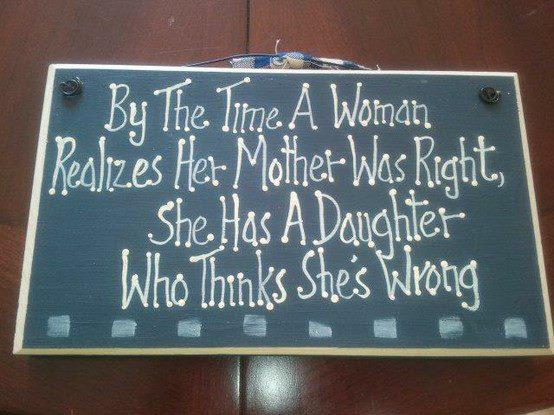 By The Time A Woman
Realizes Her Mother Was Right,
She Has A Daughter
Who Thinks She's Wrong